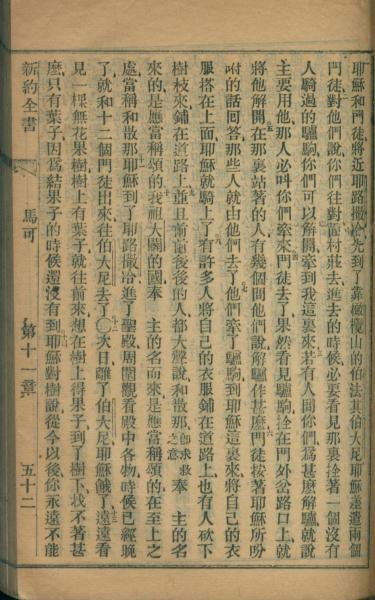 耶穌和門徒將近耶路撒冷先到了靠橄欖山的伯法其伯大尼耶穌差遣兩個
門徒對他們說你們往對面村莊去進去的時候必要看見那裏拴著一個沒有
人騎過的驢駒你們可以解開牽到我這裏來若有人問你們爲甚麽解驢就說
主要用他那人必叫你們牽來門徒去了果然看見驢駒拴在門外岔路口上就
將他解開在那裏站著的人有幾個問他們說解驢作甚麽門徒按著耶穌所吩
咐的話回答那些人就由他們去了他們牽了驢駒到耶穌這裏來將自己的衣
服搭在上面耶穌就騎上了有許多人將自己的衣服鋪在道路上也有人砍下
樹枝來鋪在道路上並且前前後後的人都大聲說和散那卽求救之意奉 主的名
來的是應當稱頌的我祖大闢的國奉 主的名而來是應當稱頌的在至上之
處當稱和散那耶穌到了耶路撒冷進了聖殿周圍觀看殿中各物時候已經晚
了就和十二個門徒出來往伯大尼去了〇次日離了伯大尼耶穌餓了遠遠看
見一棵無花果樹樹上有葉子就往前來想在樹上得果子到了樹下找不著甚
麽只有葉子因爲結果子的時候還沒有到耶穌對樹說從今以後你永遠不能
新約全書 馬可 第十一章 五十二